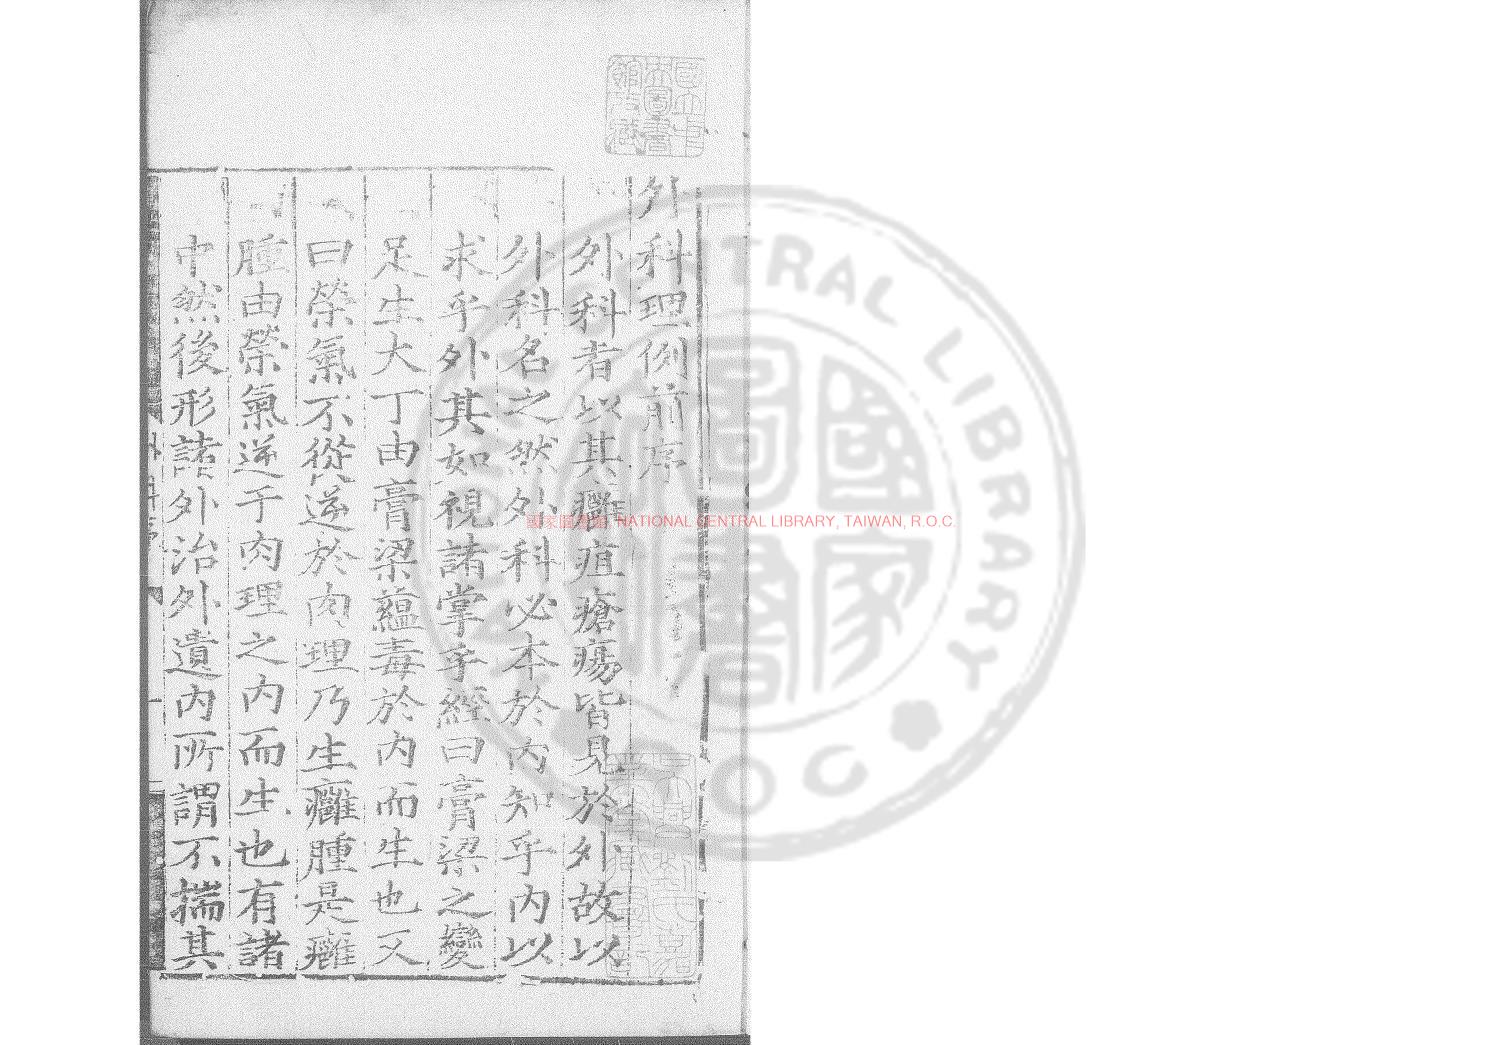 外科理例前序
外科者以其癰疽瘡瘍皆見於外故以
外科名之然外科必本於內知乎內以
求乎外其如視諸掌乎經曰膏梁之變
足生大丁由膏梁蘊毒於內而生也又
曰榮氣不從逆於肉理乃生癰腫是癰
腫由榮氣逆于肉理之內而生也有諸
中然後形諸外治外遺內所謂不揣其
國家圖書館, NATIONAL CENTRAL LIBRARY, TAIWAN, R.O.C.
國立中央圖書館收藏
NATIONAL CENTRAL LIBRARY R.O.C.
國家圖書館